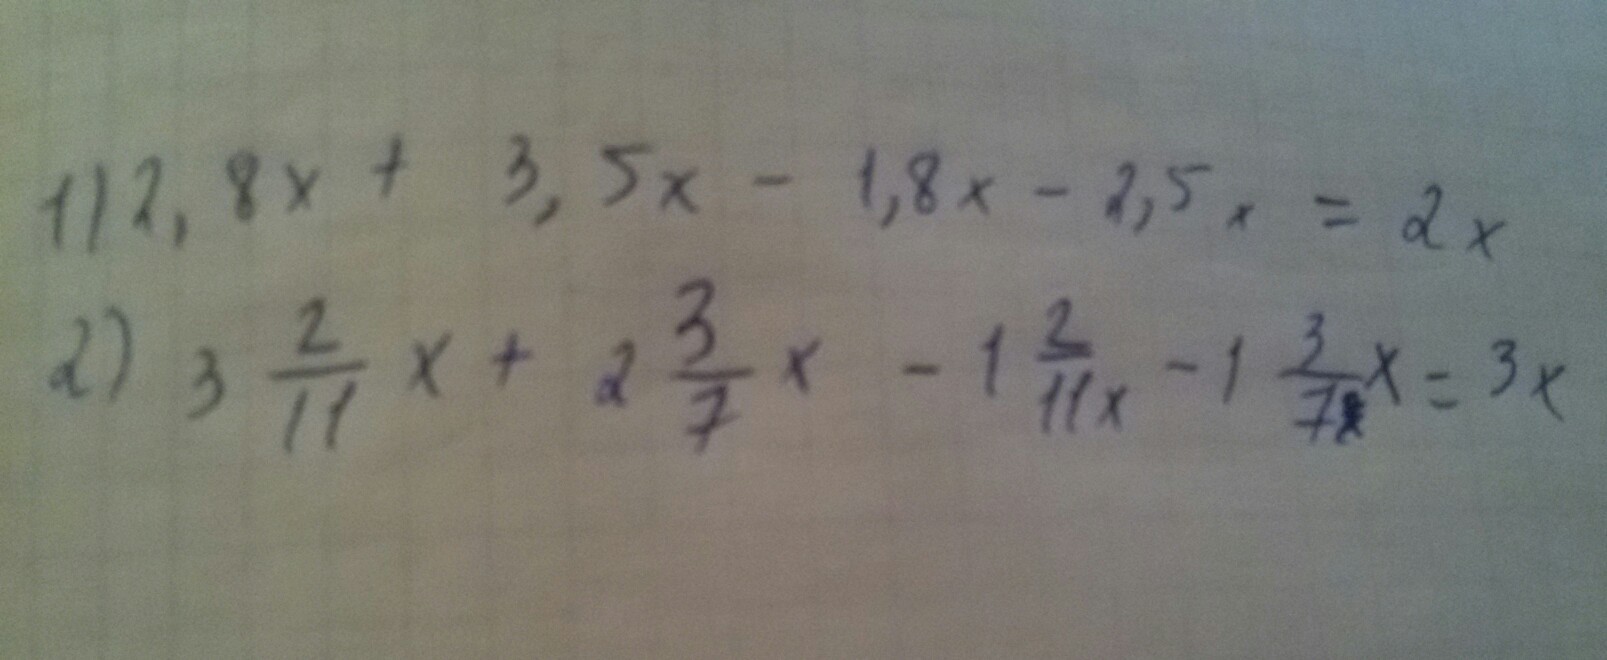 1) 2,8x + 3,5x - 1,8x - 2,5x = 2x
2) 3 2/11 x + 2 3/7 x - 1 2/11 x - 1 3/7 x = 3x